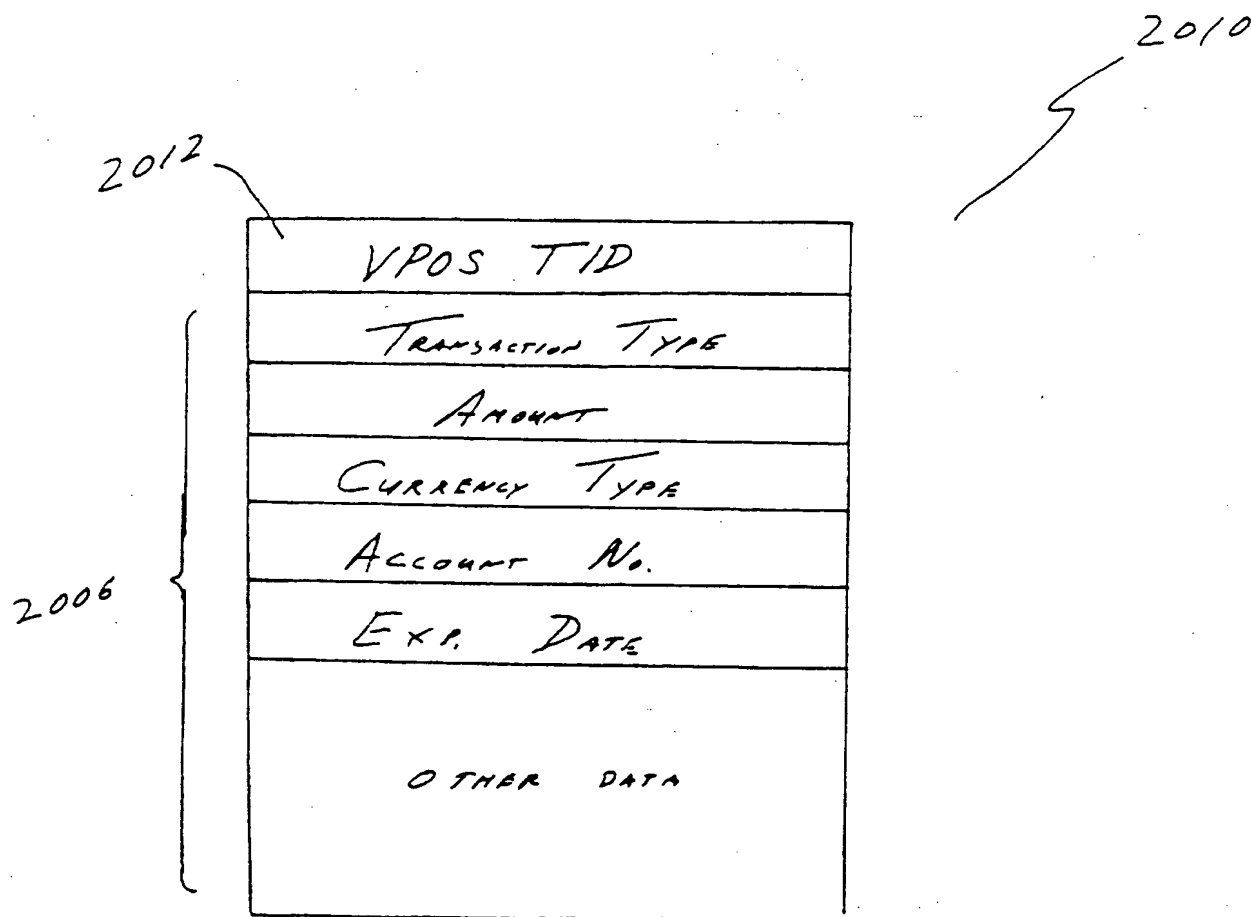 2010
2012
VPOS TID
TRANSACTION TYPE
AMOUNT
CURRENCY TYPE
ACCOUNT No.
2006
EXP. DATE
OTHER DATA